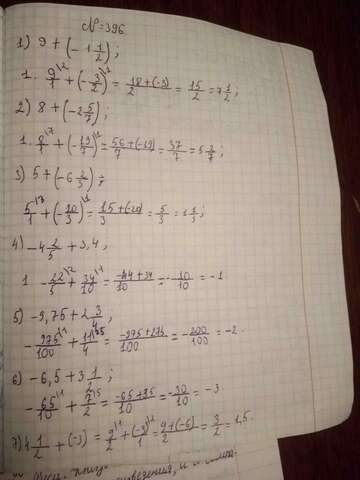 №=396
1) 9 + (-1 1/2);
1. 9/1 |2 + (-3/2) |1 = 18+(-3)/2 = 15/2 = 7 1/2;
2) 8 + (-2 5/7);
1. 8/1 |7 + (-19/7) |1 = 56+(-19)/7 = 37/7 = 5 2/7;
3) 5 + (-6 2/3);
5/1 |3 + (-20/3) |1 = 15+(-20)/3 = 5/3 = 1 2/3;
4) -4 2/5 + 3,4,
1 -22/5 |2 + 34/10 |1 = -44+34/10 = -10/10 = -1
5) -9,75 + 2 3/4,
-975/100 |1 + 11/4 |25 = -975+275/100 = -200/100 = -2.
6) -6,5 + 3 1/2;
-65/10 |1 + 7/2 |5 = -65+35/10 = -30/10 = -3
7) 4 1/2 + (-3) = 9/2 |1 + (-3/1) |2 = 9+(-6)/2 = 3/2 = 1,5.